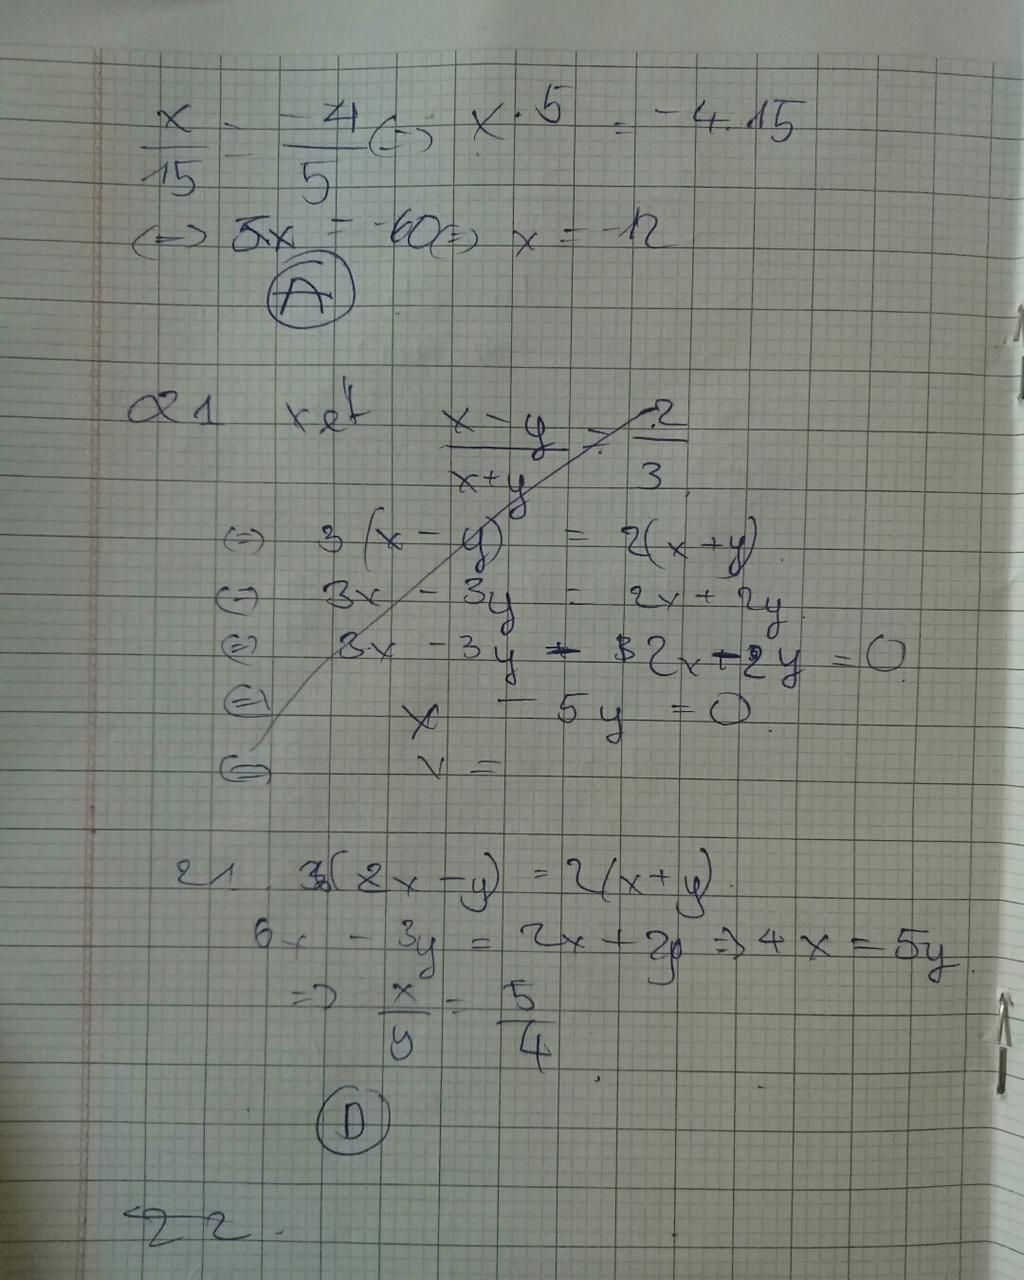 x/15 = -4/5 (=) x.5 = -4.15
(=) 5x = -60 (=) x = -12
A
Q21 xét x-y/x+y = 2/3
(=) 3(x - y) = 2(x+y)
(=) 3x - 3y = 2x + 2y
(=) 3x - 3y - 2x - 2y = 0
(=) x - 5y = 0
(=) =
21 3(2x - y) = 2(x+y)
6x - 3y = 2x + 2y => 4x = 5y
=> x/y = 5/4
D
22.